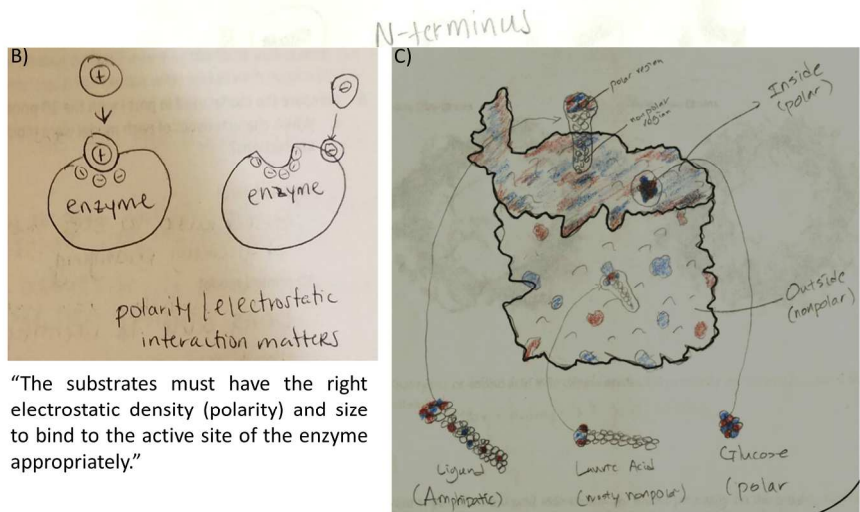 N-terminus
B)
enzyme
enzyme
polarity/electrostatic
interaction matters
"The substrates must have the right
electrostatic density (polarity) and size
to bind to the active site of the enzyme
appropriately."
C)
polar region
nonpolar
region
Inside
(polar)
Outside
(nonpolar)
Ligand
(Amphipatic)
Lauric Acid
(mostly nonpolar)
Glucose
(polar